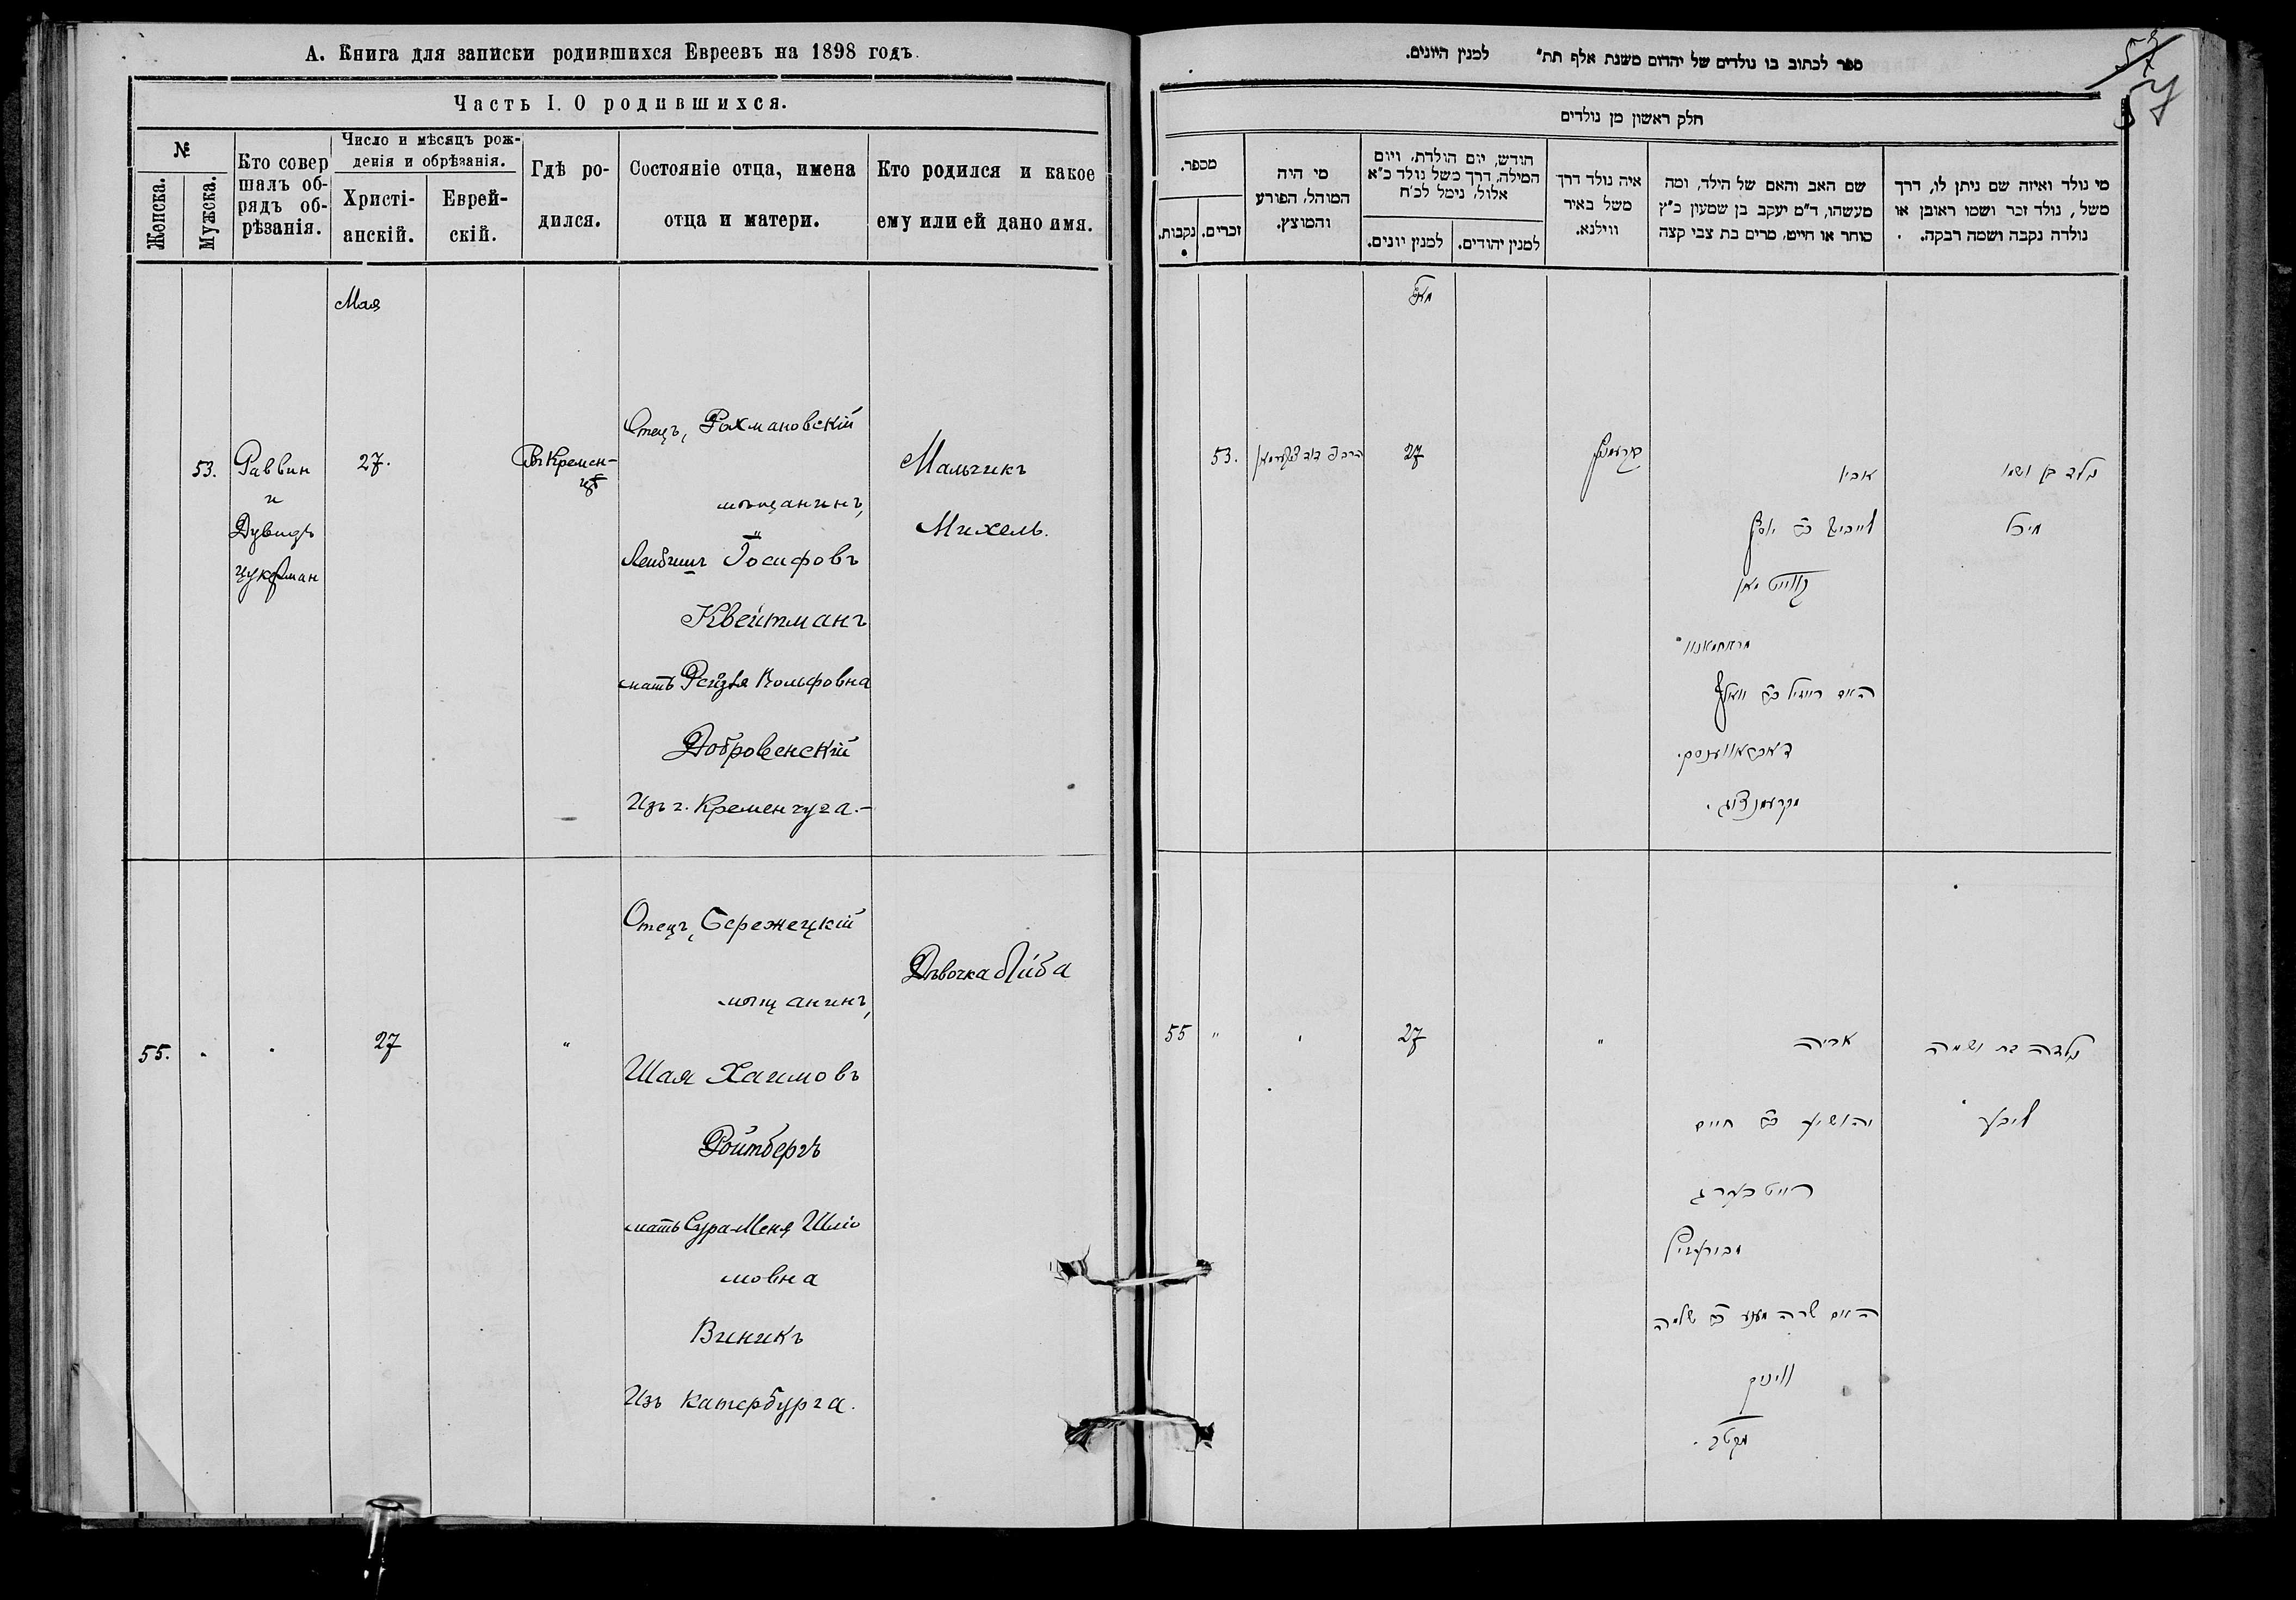 А. Книга для записки родившихся Евреевъ на 1898 годъ.
Часть I. О родившихся.
№
Женска.
Мужска.
Кто совер
шалъ об-
рядъ об-
рѣзанія.
Число и мѣсяцъ рож-
денія и обрѣзанія.
Христі-
анскій.
Еврей-
скій.
Гдѣ ро-
дился.
Состояніе отца, имена
отца и матери.
Кто родился и какое
ему или ей дано имя.
Мая
53.
Раввин
и
Дувидъ
Цукерман
27.
Въ Кремен-
цѣ
Отецъ, Рохмановскій
мѣщанинъ,
Лейбишъ Іосифовъ
Квейтманъ
мать Рейзя Вольфовна
Добровенскій
Изъ г. Кременчуга.-
Мальчикъ
Михель.
55.
27
"
Отецъ, Бережецкій
мѣщанинъ,
Шая Хаимовъ
Ройтбергъ
мать Сура-Меня Шліо
мовна
Виникъ
Изъ Катербурга.
Дѣвочка Либа
ספר לכתוב בו נולדים של יהדום משנת אלף תת" למנין היונים.
57
57
חלק ראשון מן נולדים
מספר.
נקבות.
זכרים.
מי היה
המוהל, הפורע
והמוצץ.
חודש, יום הולדת, ויום
המילה, דרך משל נולד כ"א
אלול, נימל לכ"ח
למנין יונים.
למנין יהודים.
איה נולד דרך
משל באיר
ווילנא.
שם האב והאם של הילד, ומה
מעשהו, ד"מ יעקב בן שמעון כ"ץ
סוחר או חייט, מרים בת צבי קצה
מי נולד ואיזה שם ניתן לו, דרך
משל, נולד זכר ושמו ראובן או
נולדה נקבה ושמה רבקה.
מאי
53.
27
קרעמניץ
אביו
לייביש ב"ר יוסף
קווייטמאן
מראחמאנוו
האם רייזיל ב"ר וואלף
דאבראווענסקי
מקרעמנצוג.
נולד בן ושמו
מיכל
55
"
27
"
אביה
יהושע ב"ר חיים
רויטבערג
האם שרה מעניע ב"ר שלמה
וויניק
נולדה בת ושמה
ליבע